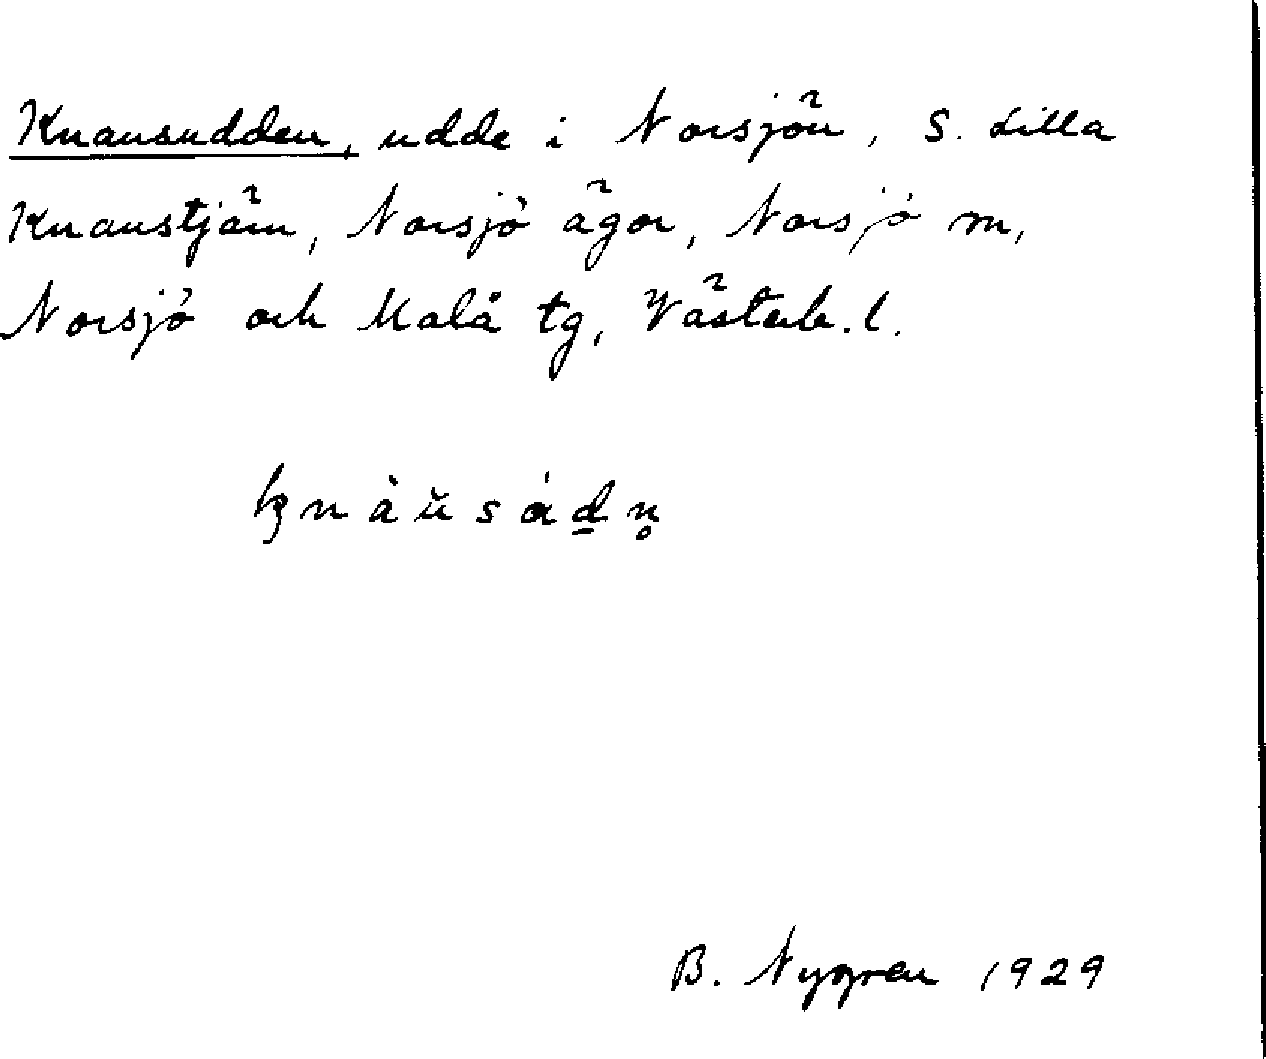 Knausudden, udde i Norsjön, S. Lilla
Knaustjärn, Norsjö ägor, Norsjö m,
Norsjö och Malå tg, Västerb. l.
B. Nygren 1929